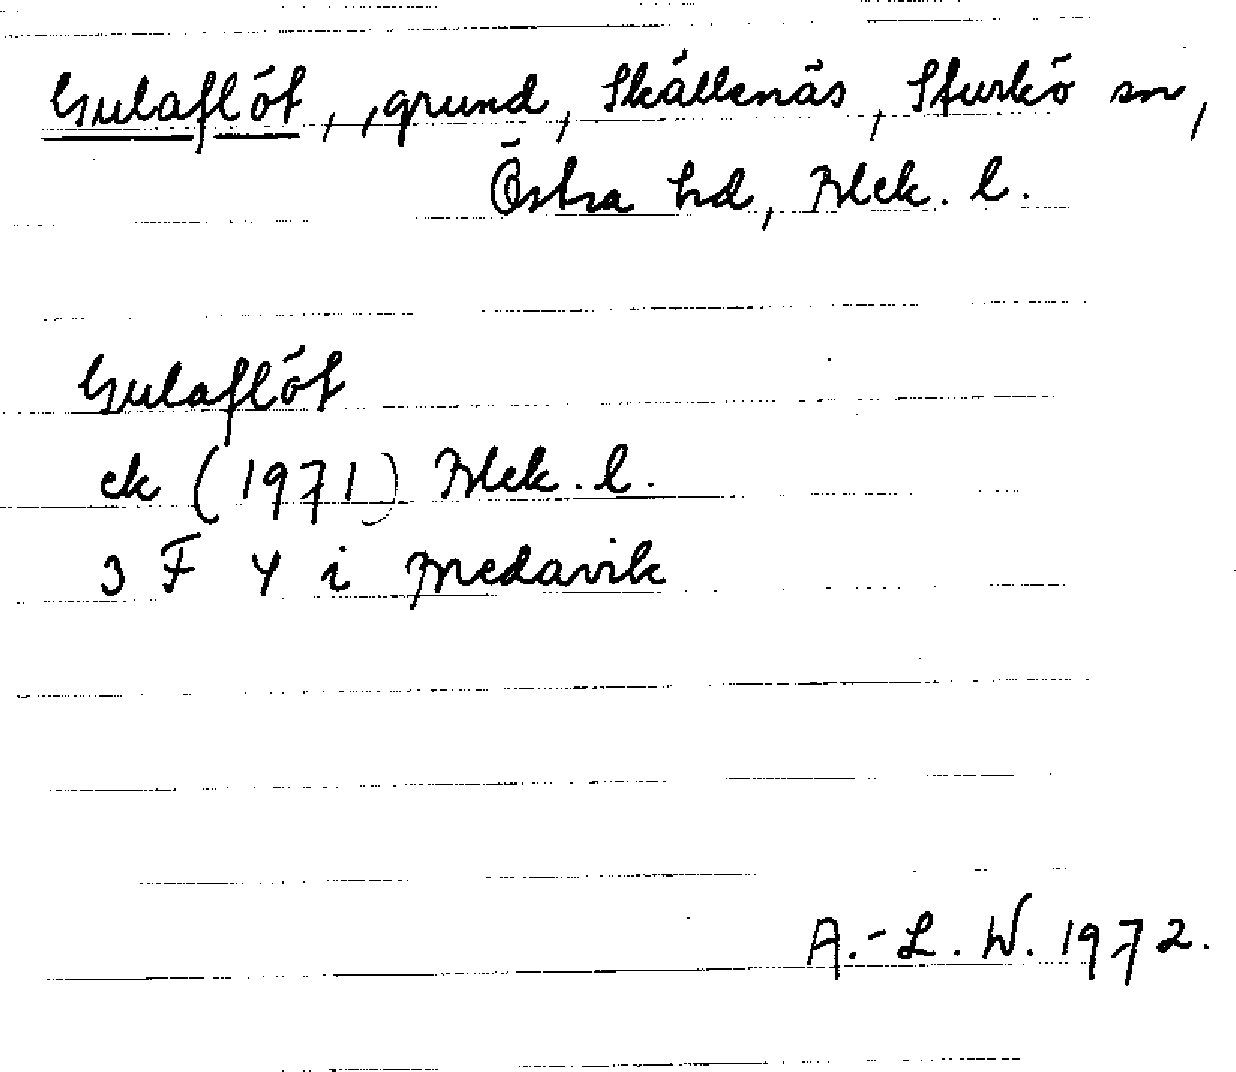 Gulaflöt, , grund, Skällenäs, Sturkö sn,
Östra hd, Blek. l.
Gulaflöt
ek (1971) Blek. l.
3 F 4 i Medavik
A.-L. W. 1972.